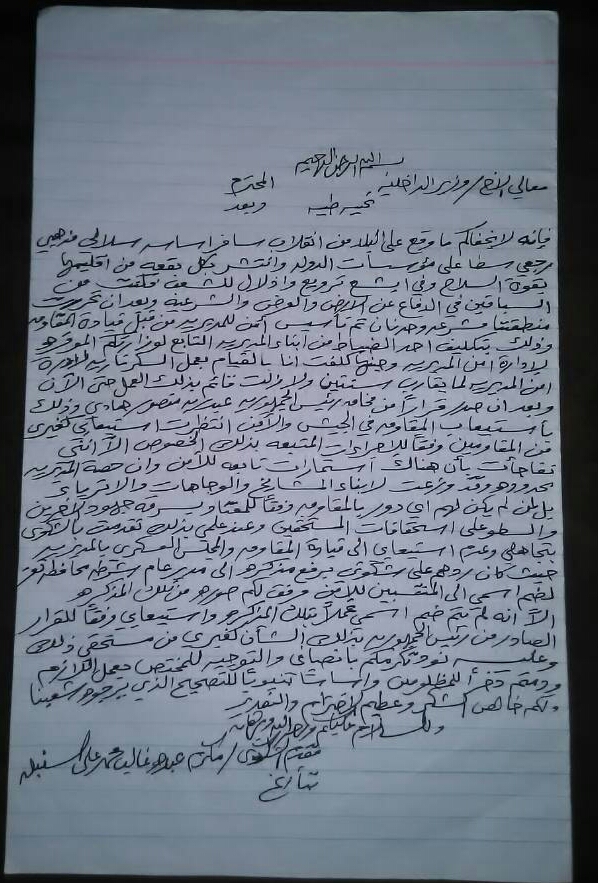 بسم الله الرحمن الرحيم
معالي الاخ/ وزير الداخلية المحترم
تحيه طيبه وبعد
فإنه لا يخفاكم ما وقع على البلاد من انقلاب سافر اساسه سلالي مذهبي
رجعي سطا على مؤسسات الدوله وانتشر بكل بقعه من اقليمها
بقوة السلاح وفي ابشع ترويع واذلال للشعب فكنت من
السباقين في الدفاع عن الارض والعرض والشرعية وبعد ان تحررت
منطقتنا مشرعه وحدنان تم تأسيس أمن للمديريه من قبل قيادة المقاومه
وذلك بتكليف احد الضباط من ابناء المديريه التابع لوزارتكم الموقره
لإدارة امن المديريه وحينها كلفت انا بالقيام بعمل السكرتاريه لإدارة
امن المديريه لما يقارب سنتين ولا زلت قائم بذلك العمل حتى الآن
وبعد ان صدر قراراً من فخامة رئيس الجمهوريه عبدربه منصور هادي وذلك
بأستيعاب المقاومه في الجيش والأمن انتظرت استيعابي كغيري
من المقاومين وفقاً للإجراءات المتبعه بذلك الخصوص الآ انني
تفاجأت بأن هناك أستمارات تابعه للأمن وان حصة المديريه
محدوده وقد وزعت لابناء المشايخ والوجاهات والاقرباء
بل لمن لم يكن لهم اي دور بالمقاومه وفقاً للمعتاد وبسرقة جهود الاخرين
والسطو على استحقاقات المستحقين وعند علمي بذلك تقدمت بالشكوى
بتجاهلي وعدم استيعابي الى قيادة المقاومه والمجلس العسكري بالمديريه
حيث كان ردهم على شكوتي برفع مذكره الى مدير عام شرطه محافظة تعز
لضم اسمي الى المنتسبين للامن ومرفق لكم صوره من تلك المذكره
الآ انه لم يتم ضم اسمي عملاً بتلك المذكره واستيعابي وفقاً للقرار
الصادر من رئيس الجمهوريه بذلك الشأن كغيري من مستحقي ذلك
وعليه نود تكرمكم بانصافي والتوجيه للمختص بعمل اللازم
ودمتم ذخراً للمظلومين واساساً بنيوياً للتصحيح الذي يرجوه شعبنا
ولكم خالص الشكر وعظيم الاحترام والتقدير
والسلام عليكم ورحمة الله وبركاته
مقدم الشكوى / عبده غالب محمد علي
بتأريخ